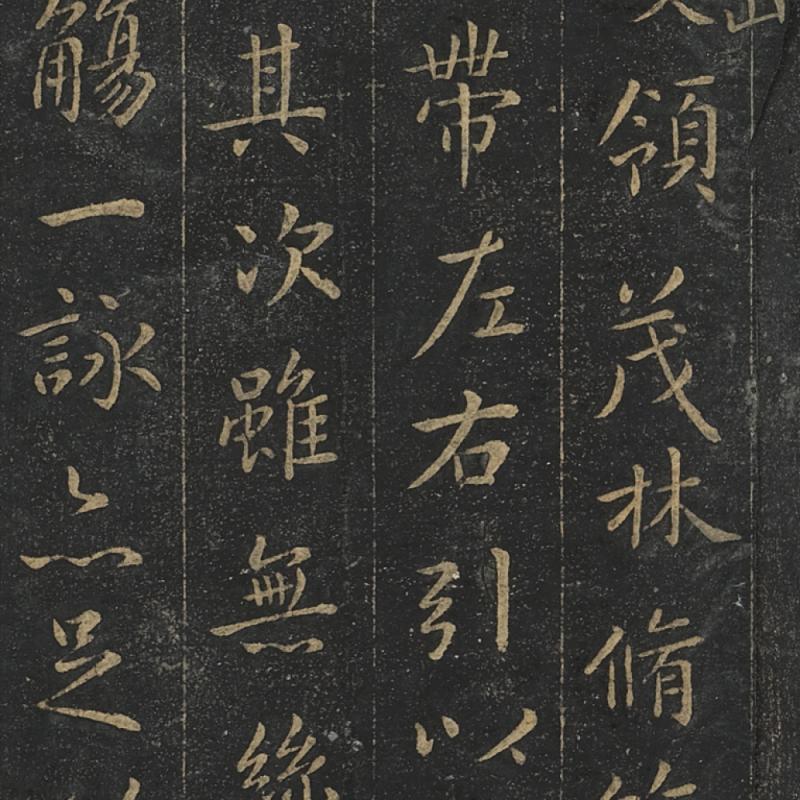 山
領茂林脩
帶左右引以
其次雖無絲
觴一詠亦足